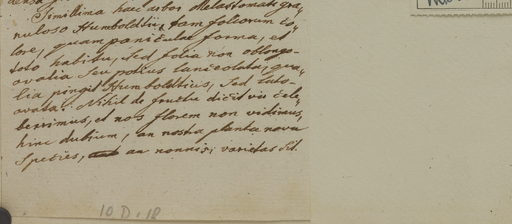 Simillima haec arbor Melastomati gra-
nuloso Humboldtii, tam foliorum co-
lore, quam paniculae forma, et
toto habitu, Sed folia non oblongo-
ovalia Seu potius lanceolata, qua-
lia pingit Humboldtius, Sed lato-
ovata. Nihil de fructu dicit vir cele-
berrimus, et nos florem non vidimus,
hinc dubium, an nostra planta nova
Species, an nonnisi varietas sit.
10 D. 18